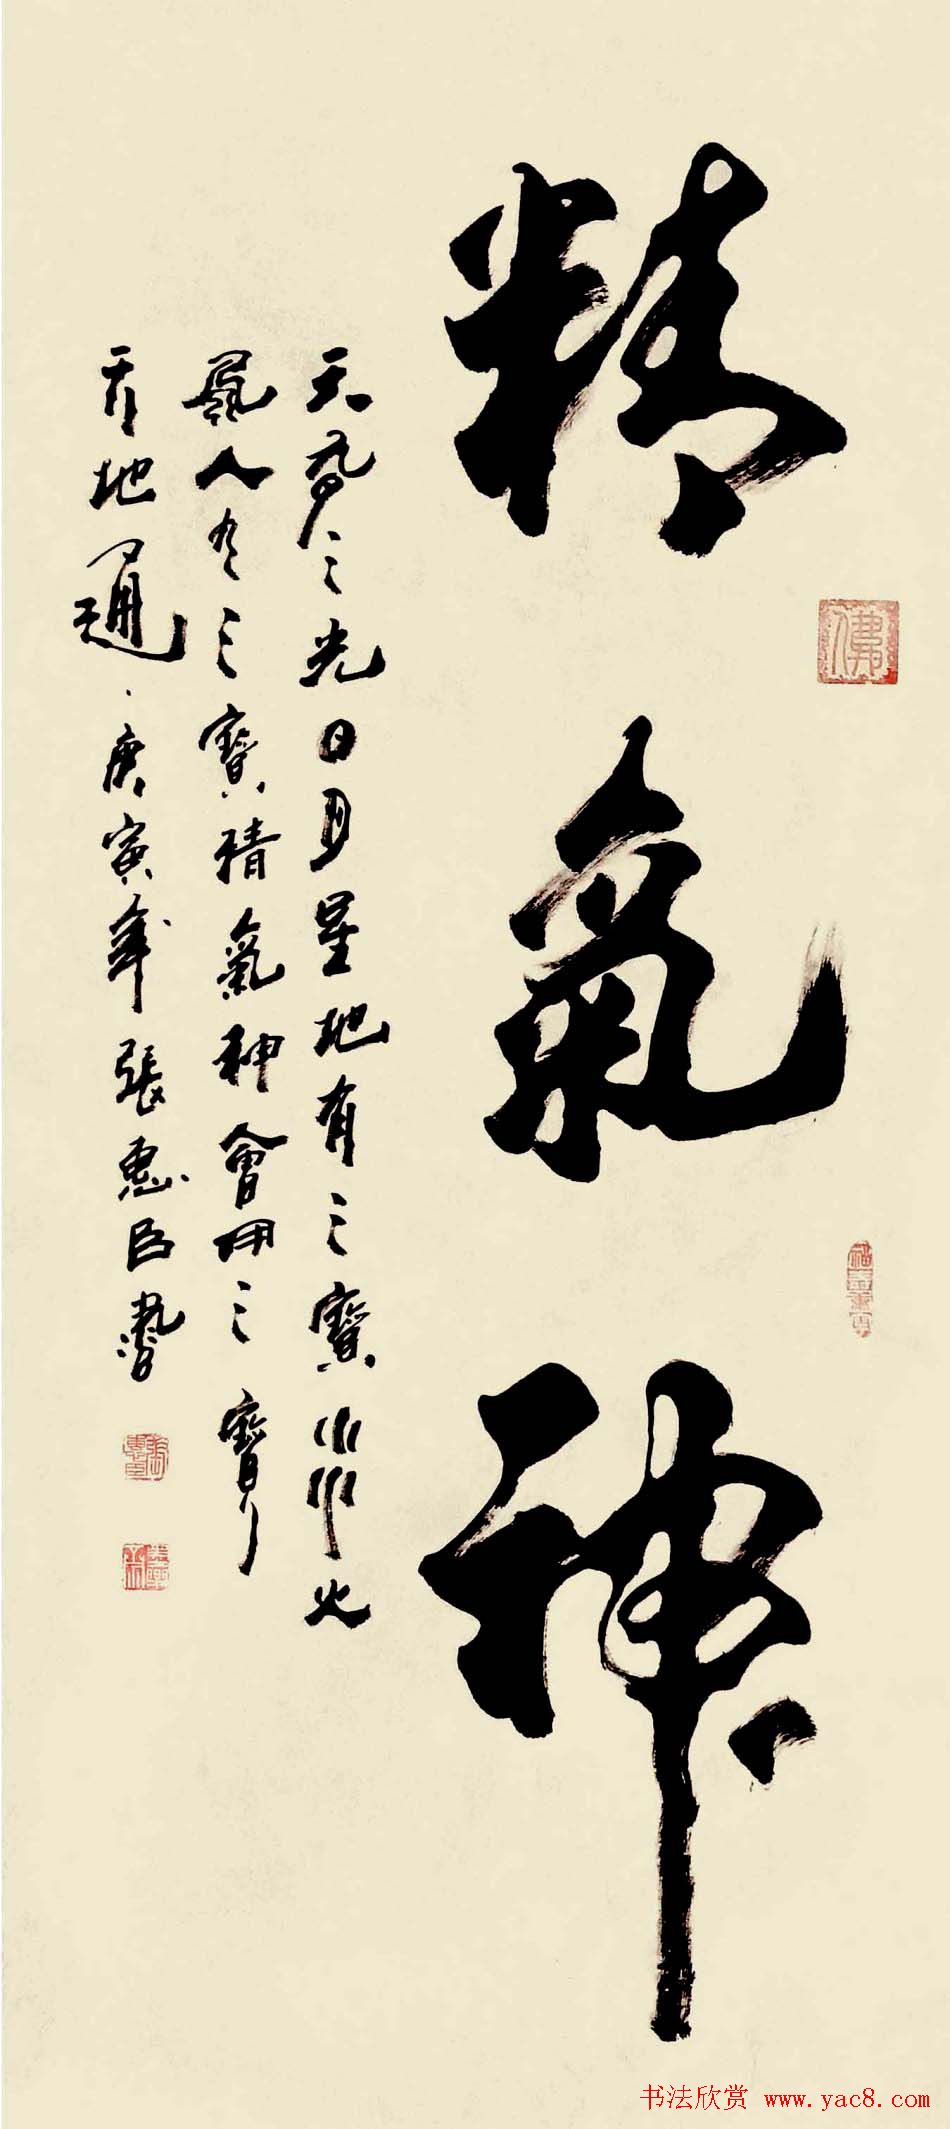 精氣神
天有三光日月星地有三寶水火
風人有三寶精氣神會用三寶
天地通庚寅年張惠臣書
佛
书法欣赏 www.yac8.com